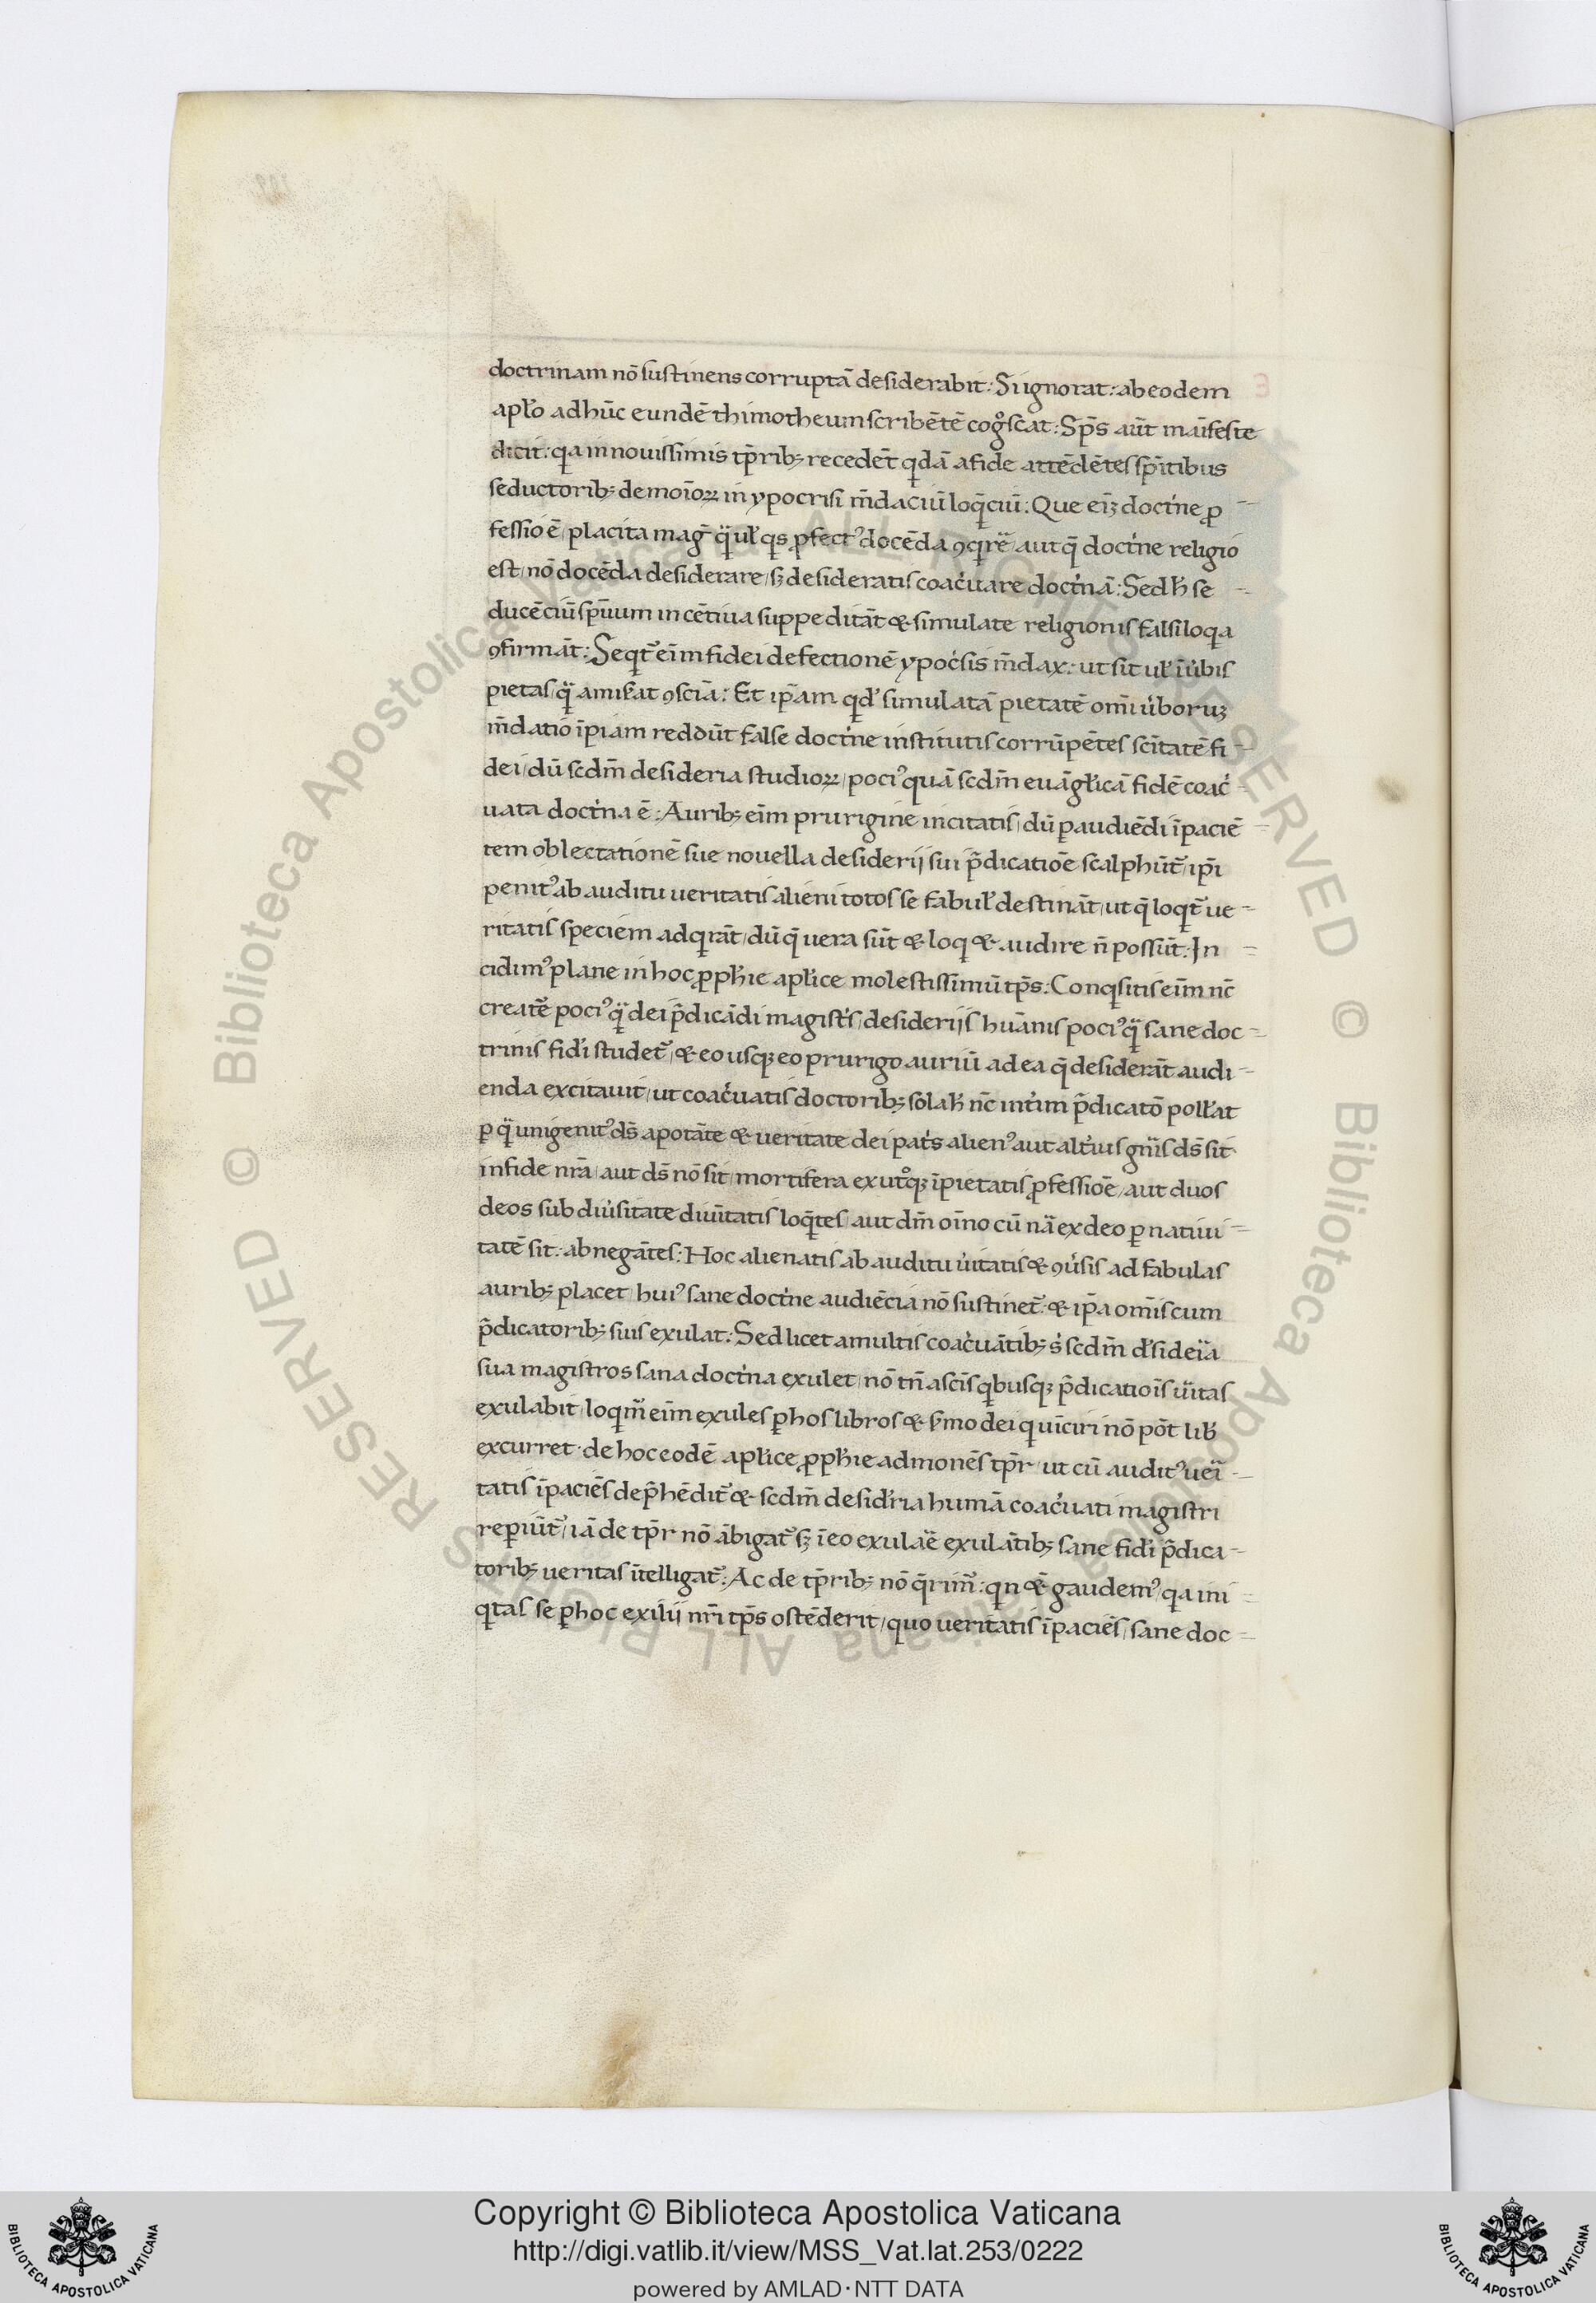 doctrinam nō sustinens corruptā desiderabit: Si ignorat: ab eodem
apło adhūc eundē thimotheum scribētē cogͦscat: Sp̄s aūt māifeste
dicit: qa in nouissimis tp̄rib; recedēt qdā a fide attēdētes sp̄itibus
seductorib; demoioꝝ in ypocrisi m̄daciū loq̄ciū: Que eīȝ doct'ne ꝓ
fessio ē placita maḡ q̄ ꝓfect' docēda ꝯqrē aut q̄ doct'ne religio
est nō docēda desiderare sȝ desideratis coac'uare doct'nā: Sed h̄ se
ducēciū sp̄uum incētiua suppeditāt & simulate religionis falsiloqa
ꝯfirmāt: Seqt' eīm fidei defectionē ypoc'sis m̄dax: ut sit uł ī u'bis
pietas q̄ amis'at ꝯsciā: Et ip̄am qd' simulatā pietatē om̄i u'boruȝ
m̄datio īpiam reddūt false doct'ne institutis corrūpētes sc̄itatē fi
dei dū scdm̄ desideria studioꝝ poci' quā scdm̄ euāgłicā fidē coac'
uata doct'na ē: Aurib; eīm prurigine incitatis dū ꝑ audiēdi īpaciē
tem oblectationē sue nouella desiderij sui p̄dicatiōe scalphūt' ip̄i
penit' ab auditu ueritatis alieni totos se fabuł destināt ut q̄ loqt' ue
ritatis speciem adqrāt dū q̄ uera sūt & loq & audire n̄ possūt. In
cidim' plane in hoc ꝓph'ie apłice molestissimū tp̄s: Conqsitis eīm nc̄
creatē poci' q̄ dei p̄dicādi magist's desiderijs huānis poci' q̄ sane doc
trinis fid'i studet' & eo usqȝ eo prurigo auriū ad ea q̄ desiderāt audi
enda excitauit ut coac'uatis doctorib; sola h' nc̄ int'im p̄dicatō połł'at
ꝑ q̄ unigenit' ds̄ a potāte & ueritate dei pat's alien' aut alt'ius gn̄is ds̄ sit
in fide nr̄a aut ds̄ nō sit mortifera ex ut'qȝ īpietatis ꝓfessiōe aut duos
deos sub diu'sitate diuītatis loq̄tes aut dm̄ oīno cū nā ex deo ꝑ natiui
tatē sit: abnegātes: Hoc alienatis ab auditu u'itatis & ꝯu'sis ad fabulas
aurib; placet hui' sane doct'ne audiēcia nō sustinet' & ip̄a om̄is cum
p̄dicatorib; suis exulat: Sed licet a multis coac'uātib; s' scdm̄ d'sideia
sua magistros sana doct'na exulet nō tn̄ a sc̄is qbusqȝ p̄dicatiois u'itas
exulabit loqm' eīm exules ꝑ hos libros & s'mo dei q uīciri nō pōt lib'
excurret. de hoc eodē apłice ꝓph'ie admonēs tp̄r ut cū audit' ueī
tatis īpaciēs dep̄hēdit' & scdm̄ desid'ria humā coac'uati magistri
rep̄iūt' iā de tp̄r nō ābigat' sȝ ī eo exulaē exulātib; sane fid'i p̄dica
torib; ueritas ītelligat': Ac de tp̄rib; nō q̄rim': qn & gaudem' qa ini
qtas se ꝑ hoc exilij nr̄i tp̄s ostēderit quo ueritatis īpaciēs sane doc
Copyright © Biblioteca Apostolica Vaticana
http://digi.vatlib.it/view/MSS_Vat.lat.253/0222
powered by AMLAD·NTT DATA
BIBLIOTECA APOSTOLICA VATICANA
BIBLIOTECA APOSTOLICA VATICANA